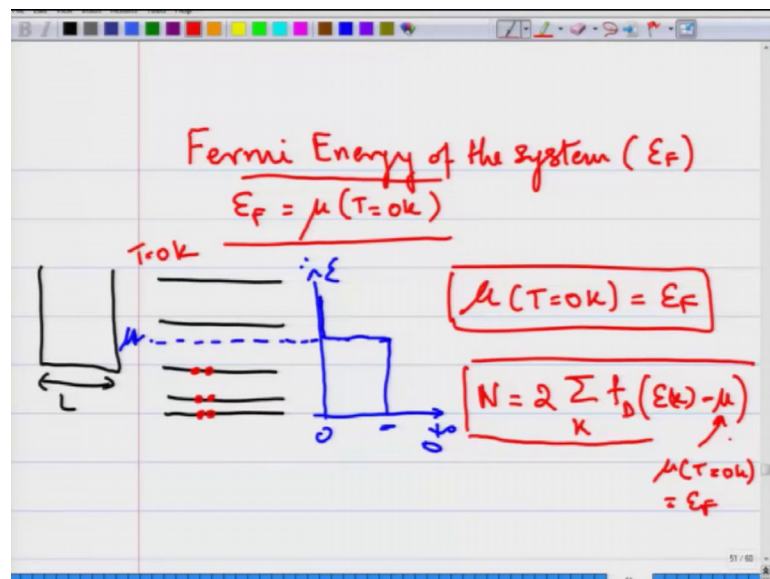 Fermi Energy of the system (ε_F)
ε_F = μ(T=0K)
T=0K
ε
μ(T=0K) = ε_F
μ
L
0
N = 2 Σ_k f_D(ε(k)-μ)
μ(T=0K)
= ε_F
51 / 60